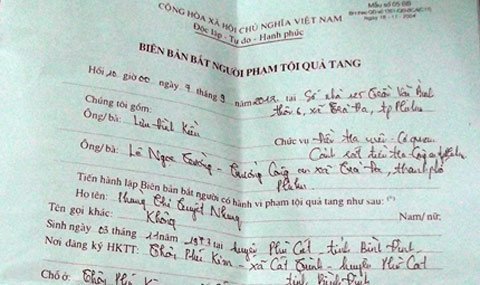 Mẫu số 05 BB
CỘNG HÒA XÃ HỘI CHỦ NGHĨA VIỆT NAM
Độc lập - Tự do - Hạnh phúc
BIÊN BẢN BẮT NGƯỜI PHẠM TỘI QUẢ TANG
Hồi 10 giờ 00 ngày 9 tháng 9 năm 2012 tại Số nhà
thôn 6, xã Trà Đa, tp Pleiku
Chúng tôi gồm:
Ông/bà: Lưu Đình Kiên Chức vụ: Điều tra viên - Cơ quan
Cảnh sát điều tra
Ông/bà: Lê Ngọc Trường - Trưởng Công an xã Trà Đa, thành phố
Pleiku
Tiến hành lập Biên bản bắt người có hành vi phạm tội quả tang như sau: (*)
Họ tên: Phùng Thị Tuyết Nhung Nam/ nữ:
Tên gọi khác: Không
Sinh ngày 03 tháng 11 năm 1973 tại huyện Phù Cát - tỉnh Bình Định
Nơi đăng ký HKTT: Thôn Phú Kim - xã Cát Trinh - huyện Phù Cát
tỉnh Bình Định
Chỗ ở: Thôn Phú Kim